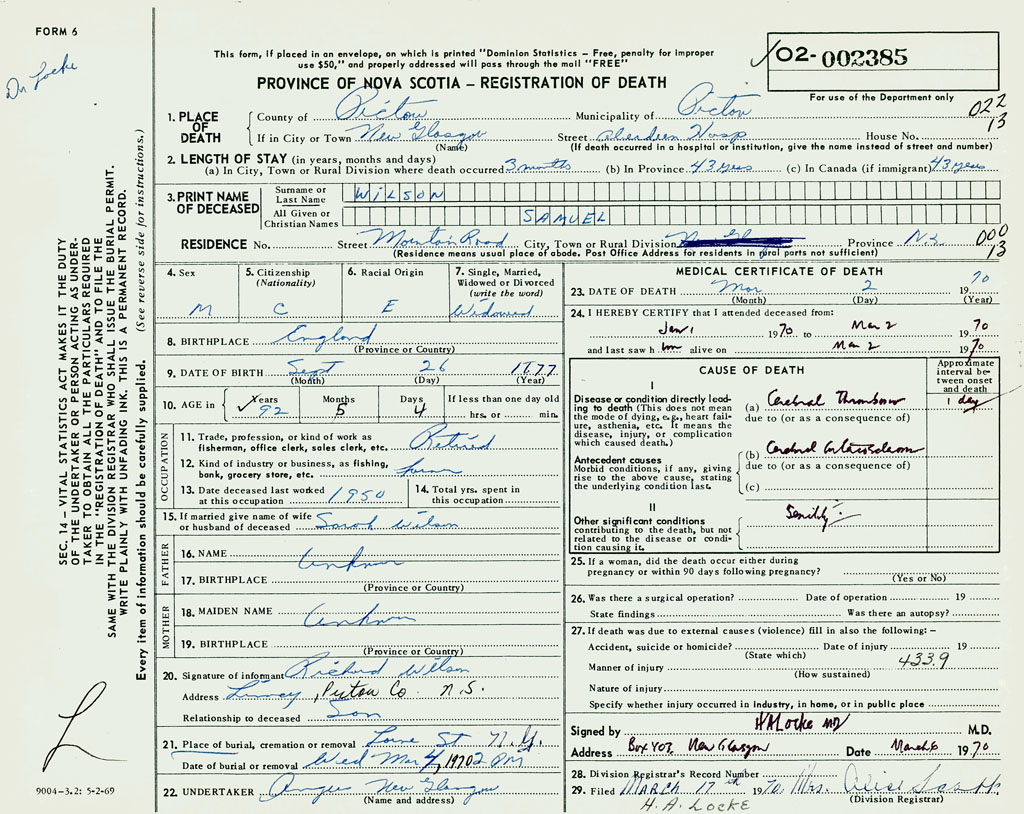 FORM 6
Dr Locke
This form, if placed in an envelope, on which is printed "Dominion Statistics – Free, penalty for improper
use $50," and properly addressed will pass through the mail "FREE"
PROVINCE OF NOVA SCOTIA – REGISTRATION OF DEATH
02- 002385
For use of the Department only
022
13
1. PLACE OF DEATH
County of Pictou Municipality of Pictou
If in City or Town New Glasgow Street Aberdeen Hosp House No.
(Name) (If death occurred in a hospital or institution, give the name instead of street and number)
2. LENGTH OF STAY (in years, months and days)
(a) In City, Town or Rural Division where death occurred 3 months (b) In Province 43 years (c) In Canada (if immigrant) 43 years
3. PRINT NAME OF DECEASED
Surname or Last Name WILSON
All Given or Christian Names SAMUEL
RESIDENCE No. Street Mountain Road City, Town or Rural Division Province N.S.
000
13
(Residence means usual place of abode. Post Office Address for residents in rural parts not sufficient)
4. Sex M
5. Citizenship (Nationality) C
6. Racial Origin E
7. Single, Married, Widowed or Divorced (write the word) Widowed
8. BIRTHPLACE England
(Province or Country)
9. DATE OF BIRTH Sept 26 1877
(Month) (Day) (Year)
10. AGE in Years 92 Months 5 Days 4 If less than one day old
hrs. or min.
OCCUPATION
11. Trade, profession, or kind of work as fisherman, office clerk, sales clerk, etc. Retired
12. Kind of industry or business, as fishing, bank, grocery store, etc.
13. Date deceased last worked at this occupation 1950
14. Total yrs. spent in this occupation
15. If married give name of wife or husband of deceased Sarah Wilson
FATHER
16. NAME Unknown
17. BIRTHPLACE
(Province or Country)
MOTHER
18. MAIDEN NAME Unknown
19. BIRTHPLACE
(Province or Country)
20. Signature of informant Richard Wilson
Address , Pictou Co. N.S.
Relationship to deceased Son
21. Place of burial, cremation or removal St N.G.
Date of burial or removal Wed Mar 4, 1970 2 PM
22. UNDERTAKER New Glasgow
(Name and address)
MEDICAL CERTIFICATE OF DEATH
23. DATE OF DEATH Mar 2 19 70
(Month) (Day) (Year)
24. I HEREBY CERTIFY that I attended deceased from:
Jan 1 1970 to Mar 2 1970
and last saw him alive on Mar 2 1970
CAUSE OF DEATH
Approximate interval between onset and death
I
Disease or condition directly leading to death (This does not mean the mode of dying, e.g., heart failure, asthenia, etc. It means the disease, injury, or complication which caused death.)
(a) Cerebral Thrombosis 1 day
due to (or as a consequence of)
Antecedent causes
Morbid conditions, if any, giving rise to the above cause, stating the underlying condition last.
(b) Cerebral Arteriosclerosis
due to (or as a consequence of)
(c)
II
Other significant conditions
contributing to the death, but not related to the disease or condition causing it.
Senility
25. If a woman, did the death occur either during pregnancy or within 90 days following pregnancy?
(Yes or No)
26. Was there a surgical operation? Date of operation 19
State findings Was there an autopsy?
27. If death was due to external causes (violence) fill in also the following: –
Accident, suicide or homicide? Date of injury 19
(State which) 433.9
Manner of injury
(How sustained)
Nature of injury
Specify whether injury occurred in industry, in home, or in public place
Signed by H A Locke MD M.D.
Address Box 407, New Glasgow Date March 6 1970
28. Division Registrar's Record Number
29. Filed MARCH 17th 1970 Mrs.
(Division Registrar)
H. A. LOCKE
SEC. 14 – VITAL STATISTICS ACT MAKES IT THE DUTY
OF THE UNDERTAKER OR PERSON ACTING AS UNDER-
TAKER TO OBTAIN ALL THE PARTICULARS REQUIRED
IN THE "REGISTRATION OF DEATH" AND TO FILE THE
SAME WITH THE DIVISION REGISTRAR WHO SHALL ISSUE THE BURIAL PERMIT.
WRITE PLAINLY WITH UNFADING INK. THIS IS A PERMANENT RECORD.
Every item of information should be carefully supplied. (See reverse side for instructions.)
L
9004–3.2: 5-2-69